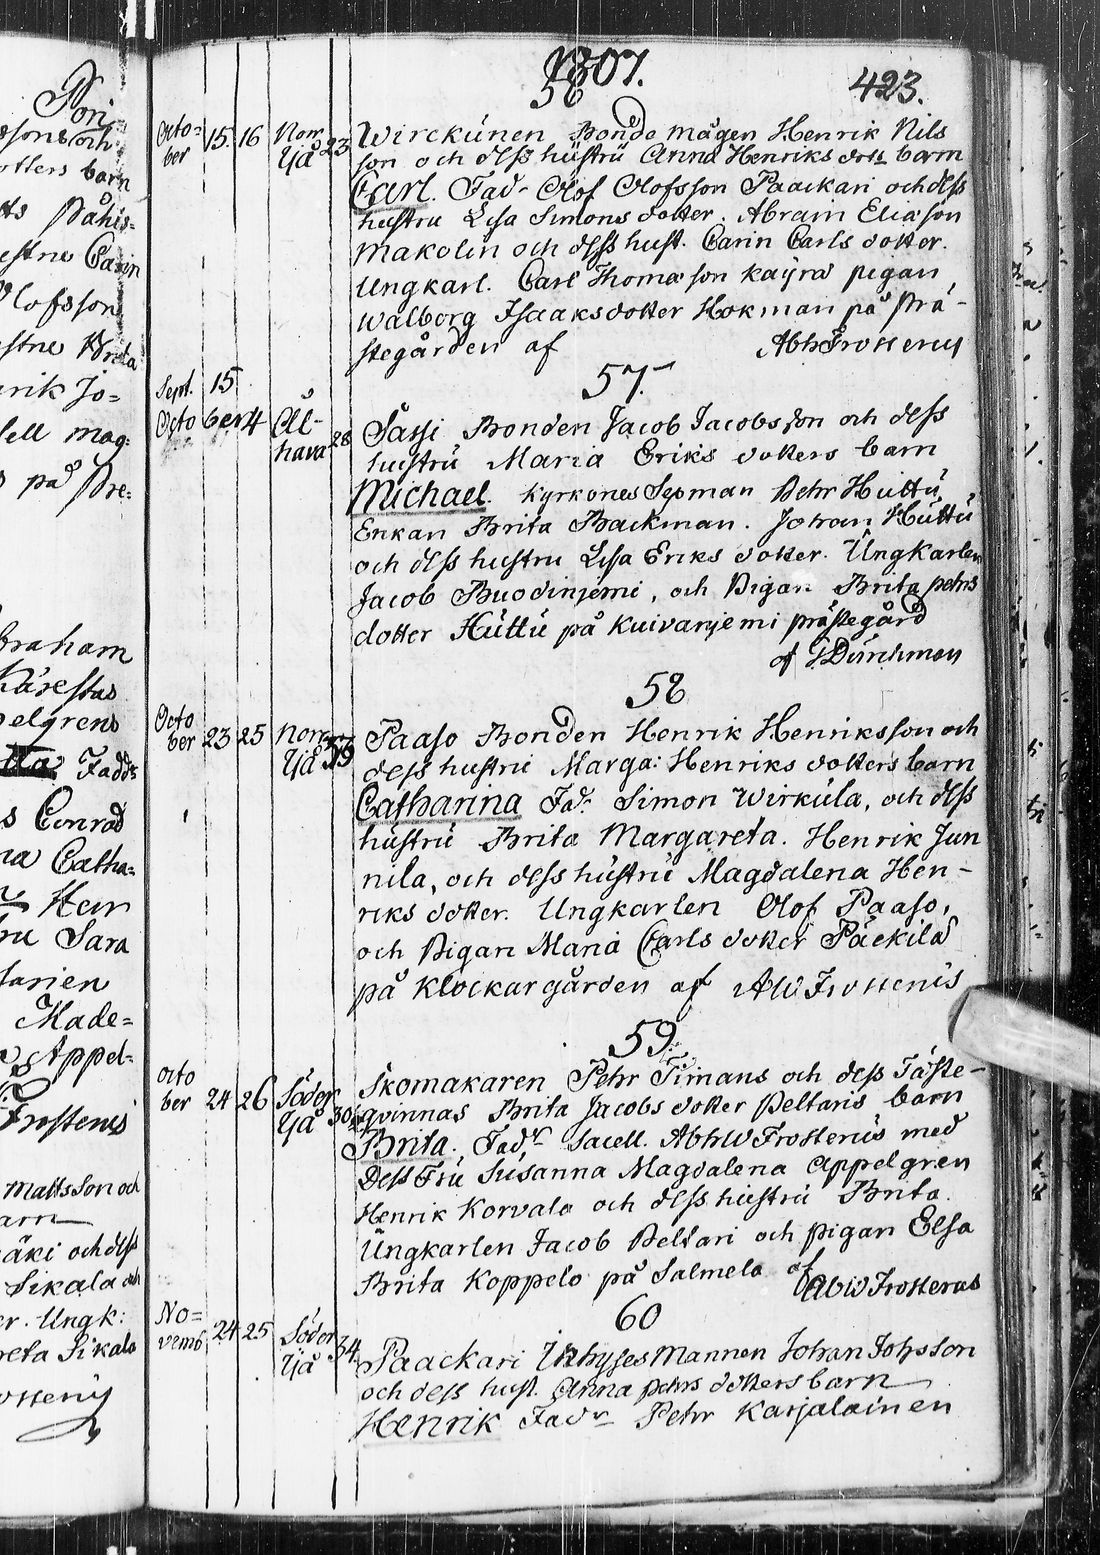 Pori-
sons och
otters barn
Påhis-
estru Carin
Olofsson
stru Brita
nrik Jo=
ell mag:
på Pre:
braham
Kärestas
pelgrens
Fadd
s Conrad
Catha=
Hen
ru Sara
Marien
Made=
Appel-
Frostenis
Matts Son och
arn
äki och dess
Sikala och
er. Ungk:
reta Sikala
ostenis
1807.
56
423.
Octo=
ber 15. 16 Norr
Ijå 23
Wirckunen Bonde mågen Henrik Nils
son och dess hustru Anna Henriks dott barn
Carl. Fad- Olof Olofsson Paackari och dess
hustru Lisa Simons dotter. Abram Eliason
Makolin och dess hust. Carin Carls dotter.
Ungkarl. Carl Thomason Käyrä pigan
Walborg Isaaksdotter Hokman på Prä-
stegården af AbhFrostenis
57.
Sept. 15
October 4 Ol-
hava 28
Sassi Bonden Jacob Jacobsson och dess
hustru Maria Eriks dotters barn
Michael. Kyrkones Sexman Pehr Huttu
Enkan Brita Backman. Johan Huttu
och dess hustru Lisa Eriks dotter. Ungkarlen
Jacob Buodinjemi, och Pigan Brita pehrs
dotter Huttu på Kuivanjemi prästegård
af
58
Octo
ber 23 25 Norr
Ijå 39
Paaso Bonden Henrik Henriksson och
dess hustru Marga: Henriks dotters barn
Catharina Fad: Simon Wirkula, och dess
hustru Brita Margareta. Henrik Jun
nila, och dess hustru Magdalena Hen-
riks dotter. Ungkarlen Olof Paaso,
och Pigan Maria Carls dotter Päckilä
på Klockargården af AWFrostenis
59.
Octo
ber 24 26 Söder
Ijå 30
Skomakaren Pehr Timans och dess Fäste-
qvinnas Brita Jacobs dotter Peltaris barn
Brita. Fadr Sacell. AbhWFrostenis med
Dess Fru Susanna Magdalena Appelgren
Henrik Korvala och dess hustru Brita.
Ungkarlen Jacob Peltari och pigan Elsa
Brita Koppelo på Salmela af AbWFrostenis
60
No=
vemb 24 25 Söder
Ijå 34
Paackari Inhyses Mannen Johan Johsson
och dess hust. Anna pehrs dotters barn
Henrik Fadr Pehr Karjalainen